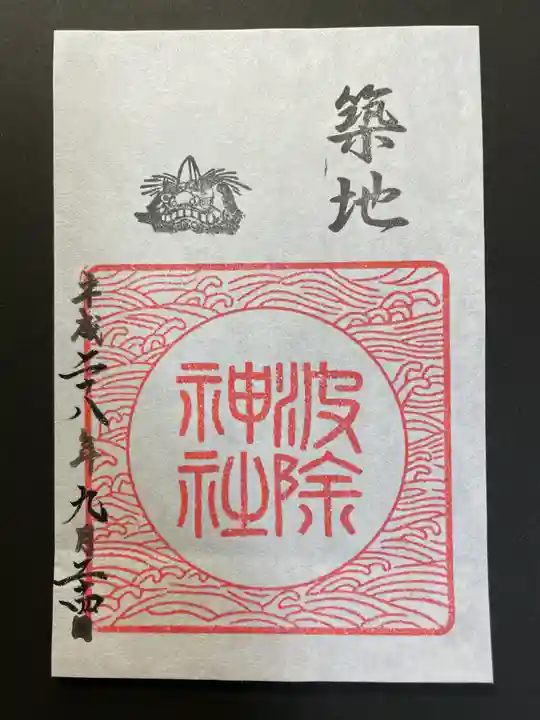 築地
波除
神社
平成二十八年九月二十四日